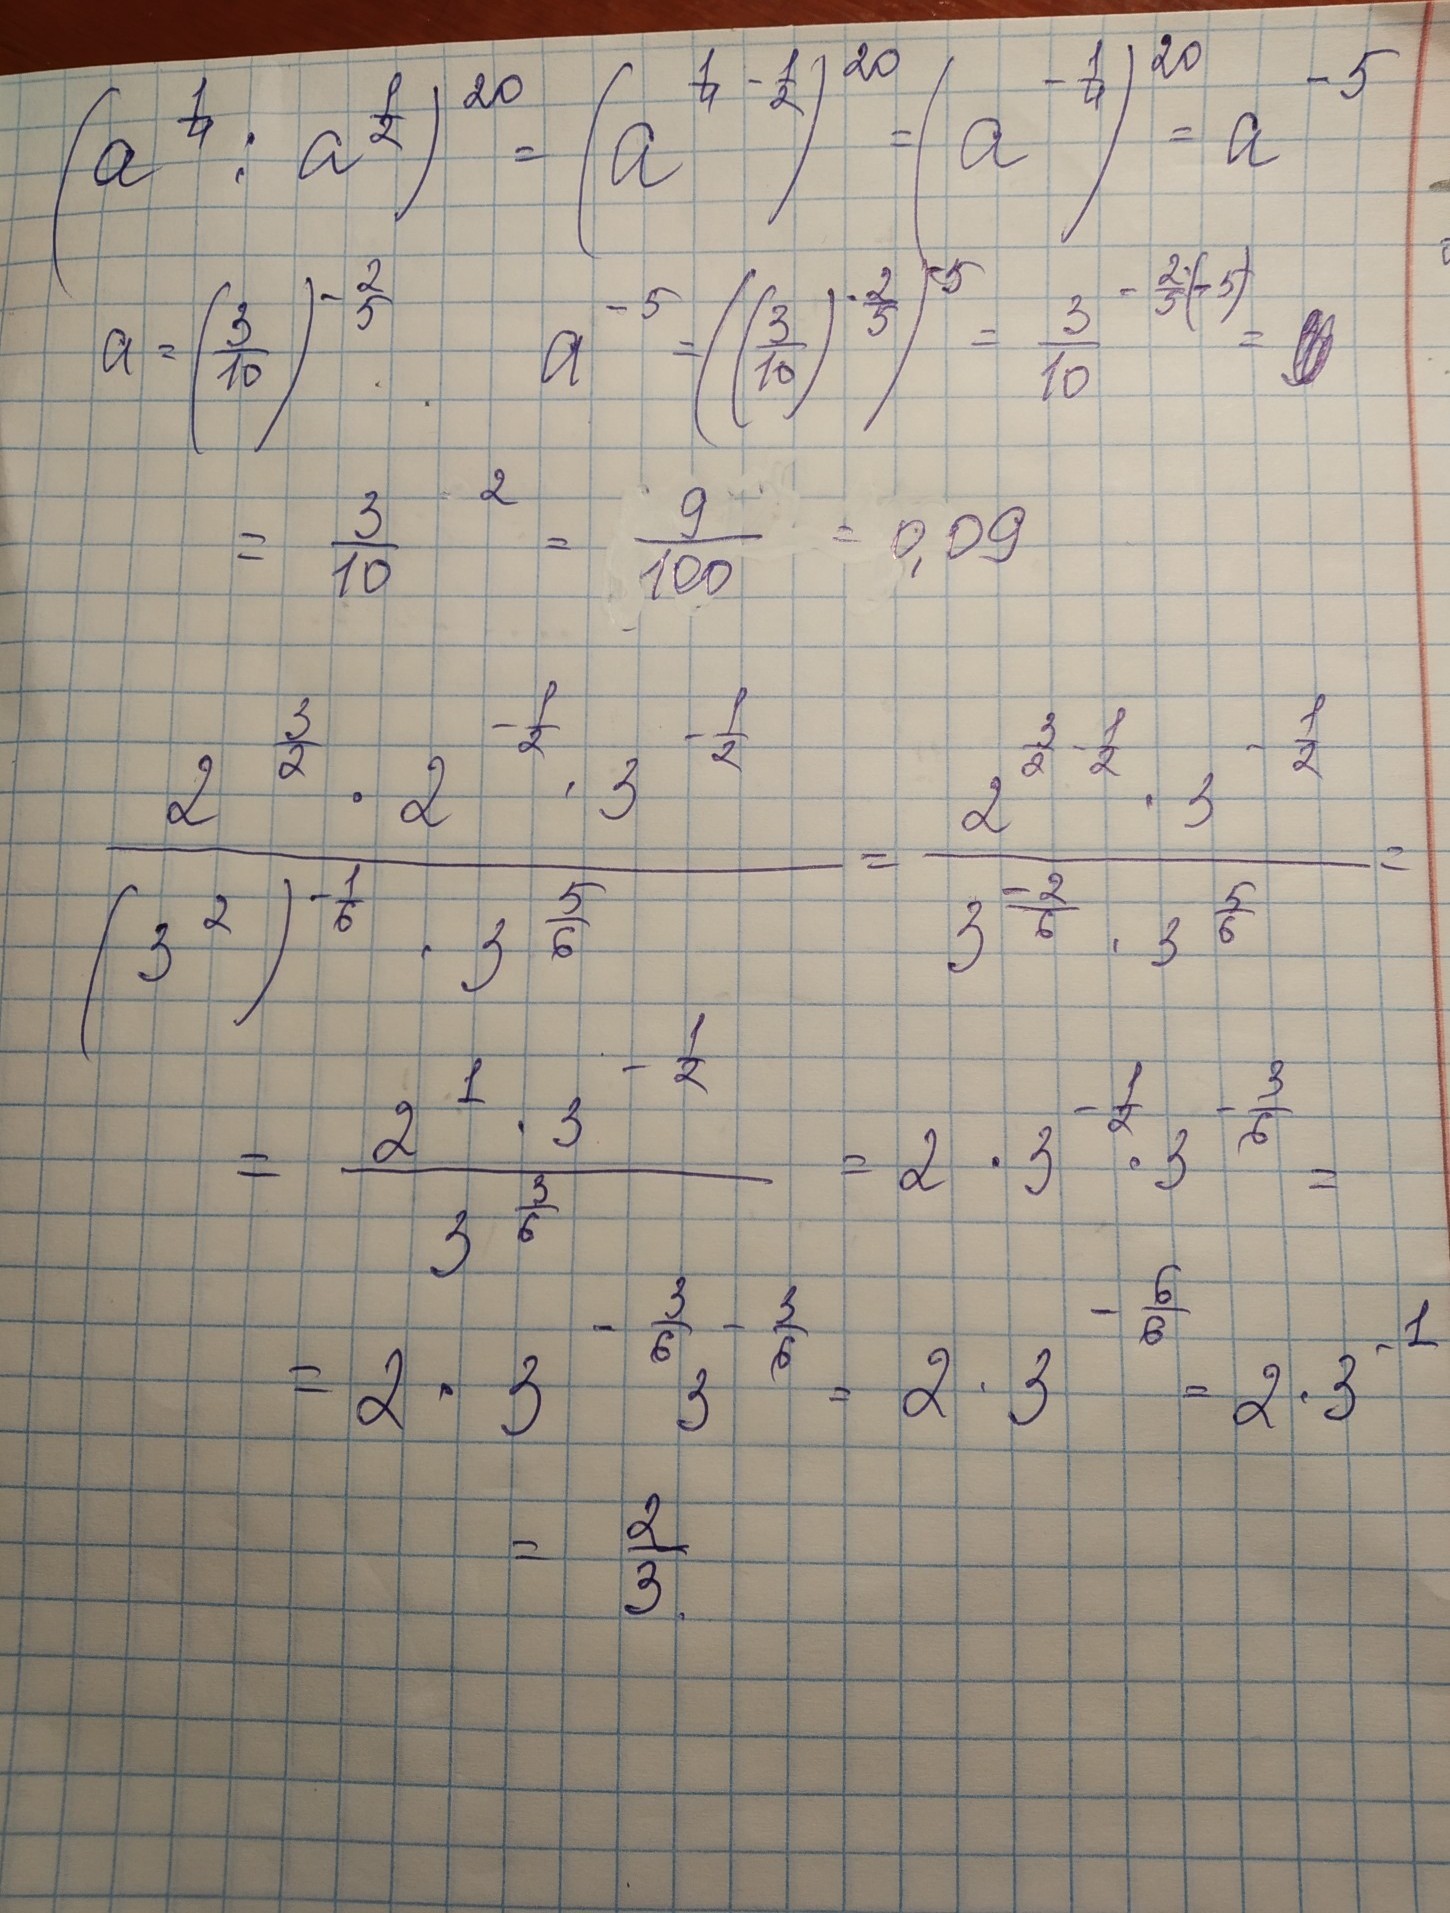 (a^{1/4} : a^{1/2})^{20} = (a^{1/4 - 1/2})^{20} = (a^{-1/4})^{20} = a^{-5}
a = (3/10)^{-2/5} a^{-5} = ((3/10)^{-2/5})^{-5} = 3/10^{-2/5·(-5)} =
= 3/10^{2} = 9/100 = 0,09
(2^{3/2} · 2^{-1/2} · 3^{-1/2}) / ((3^{2})^{-1/6} · 3^{5/6}) = (2^{3/2 - 1/2} · 3^{-1/2}) / (3^{-2/6} · 3^{5/6}) =
= (2^{1} · 3^{-1/2}) / 3^{3/6} = 2 · 3^{-1/2} · 3^{-3/6} =
= 2 · 3^{-3/6} 3^{-3/6} = 2 · 3^{-6/6} = 2 · 3^{-1}
= 2/3.